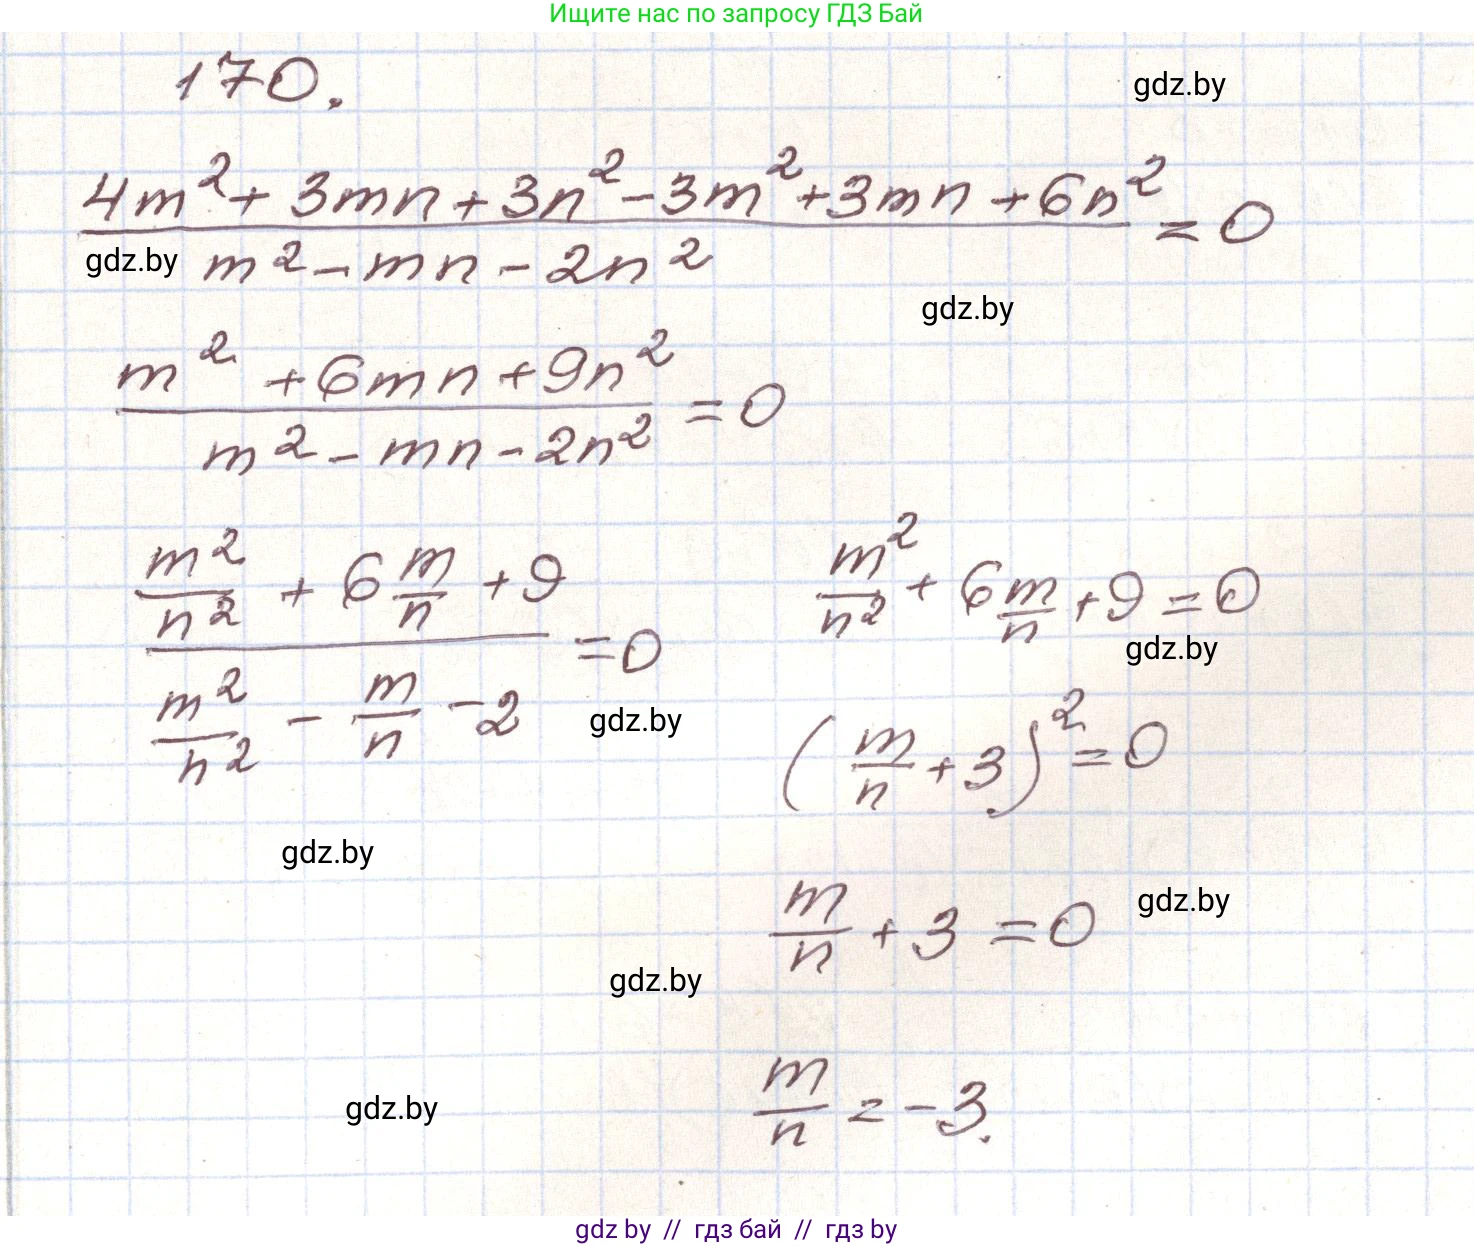 Ищите нас по запросу ГДЗ Бай
170.
gdz.by
4m² + 3mn + 3n² - 3m² + 3mn + 6n² / m² - mn - 2n² = 0
gdz.by
gdz.by
m² + 6mn + 9n² / m² - mn - 2n² = 0
m²/n² + 6 m/n + 9 / m²/n² - m/n - 2 = 0
m²/n² + 6 m/n + 9 = 0
gdz.by
gdz.by
(m/n + 3)² = 0
gdz.by
m/n + 3 = 0
gdz.by
gdz.by
m/n = -3.
gdz.by
gdz by // гдз бай // гдз by